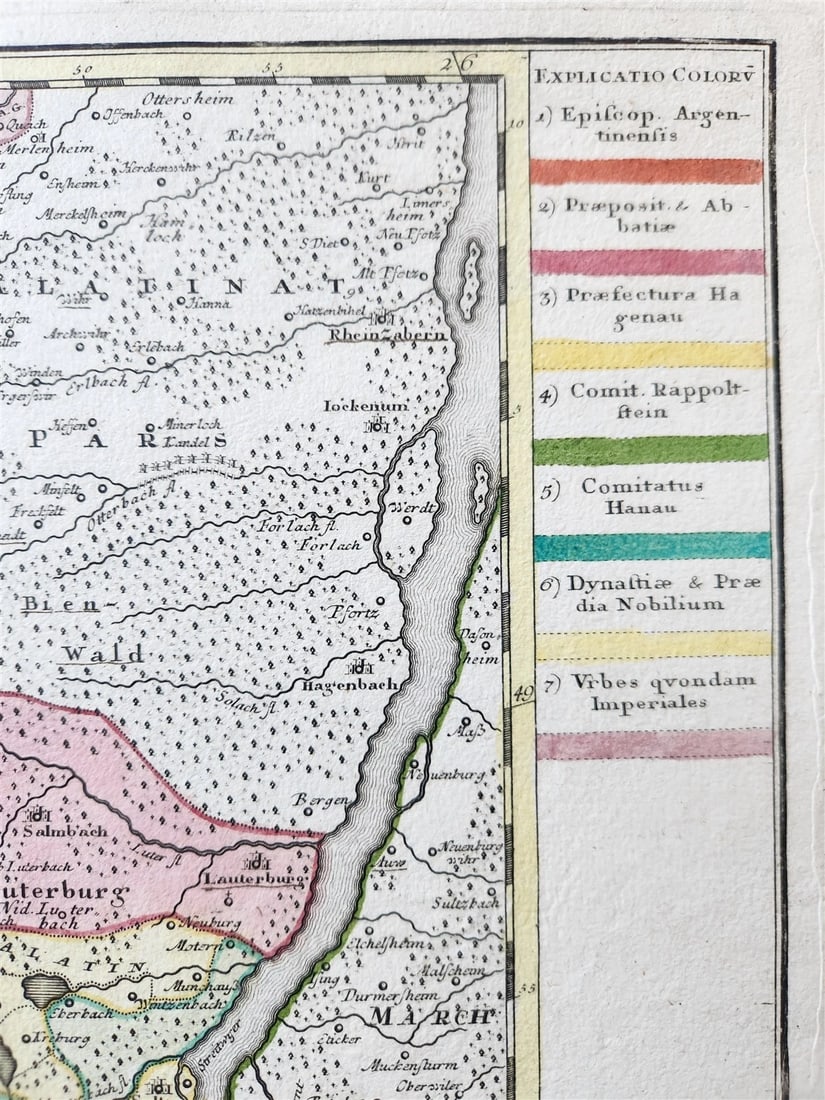 50
55
26
EXPLICATIO COLORV̄
1) Epiſcop. Argen-
tinenſis
2) Præposit. & Ab-
batiæ
3) Præfectura Ha
genau
4) Comit. Rappolt-
ſtein
5) Comitatus
Hanau
6) Dynaſtiæ & Præ
dia Nobilium
7) Vrbes qvondam
Imperiales
10
5
49
55
Ottersheim
Offenbach
Quach
Merlenheim
Rilzen
Herckenwihr
Enſheim
Kurt
Limers
heim
Merckelsheim
Ham
loch
S Diet
Neu Pfotz
Alt Pfotz
ALATINAT
Wihr
Hanna
Hatzenbihel
Rheinzabern
Archwihr
Erlebach
Winden
Erlbach fl.
Iockenum
Heſſen
Minerloch
Kandel
PARS
Minfelt
Otterbach fl.
Werdt
Forlach fl.
Forlach
Bien-
Wald
Pfortz
Daſon
heim
Hagenbach
Solach fl.
Maß
Neuenburg
Bergen
Salmbach
Luter fl
Neuenburg
wihr
Auw
Luterbach
Lauterburg
uterburg
Nid. Luter
bach
Sultzbach
Neuburg
Motern
Elchelſheim
ALATIN
Munchauß
Malſcheim
Wintzenbach
Durmerſheim
Eberbach
MARCH
Kreburg
Eticker
Muckenſturm
Oberwiler